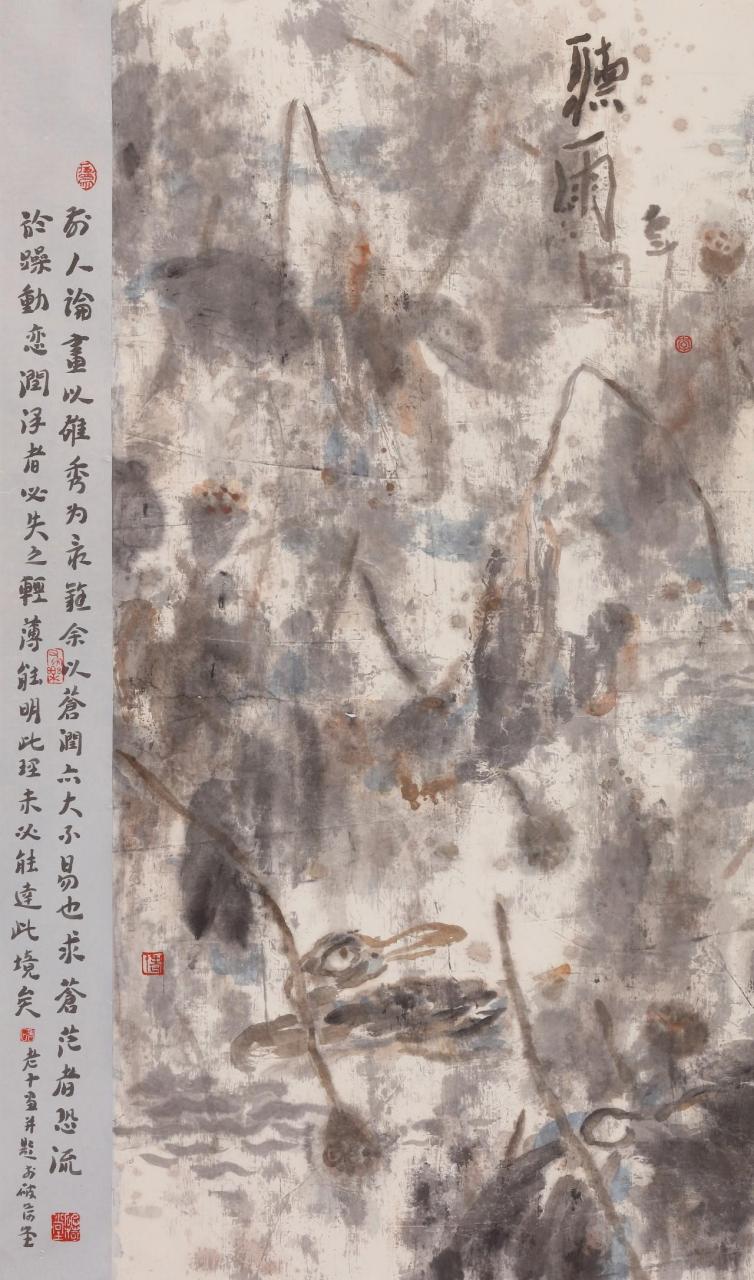 聽雨
前人論畫以雄秀为最難余以蒼潤亦大不易也求蒼茫者恐流
於躁動恋潤浮者必失之輕薄能明此理未必能達此境矣
老十画并题於破荷堂